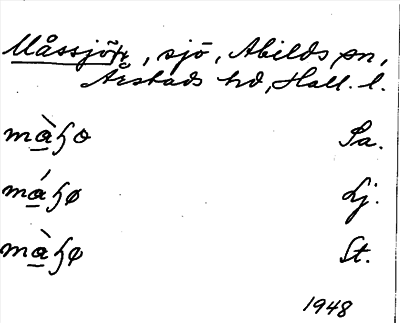 Måssjön, sjö, Abilds sn,
Årstads hd, Hall. l.
màɧo Sa.
máɧø Lj.
màɧø St.
1948